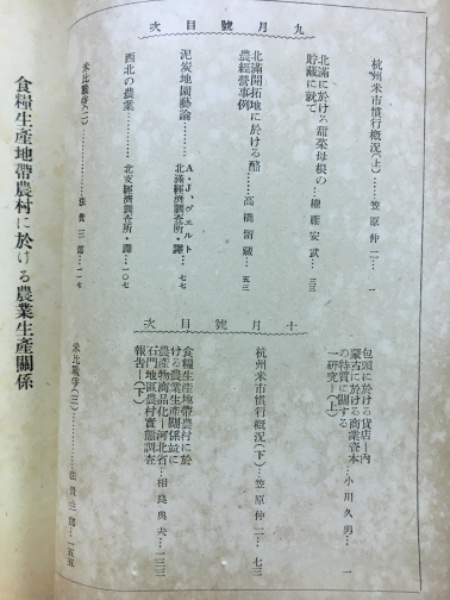 九月號目次
杭州米市慣行概況(上)……笠原仲二…一
北滿に於ける甜菜母根の
貯藏に就て
安武…三三
北滿開拓地に於ける酪
農經營事例……高橋留藏…五三
泥炭地園藝論………
A・J、ヴェルト
北滿經濟調査所・譯…七七
西北の農業…………北支經濟調査所・譯…一〇七
米比戰爭(二)………………法貴三郎…一一七
十月號目次
包頭に於ける貨店―內
蒙古に於ける商業資本
の特質に關する
一硏究―(上)…小川久男…一
杭州米市慣行槪況(下)…笠原仲二…七三
食糧生產地帶農村に於
ける農業生產關係並に
農產物商品化―河北省
石門地區農村實態調査
報告―(下)…相良典夫…一三三
米比戰爭(三)……………法貴三郎…一五五
食糧生產地帶農村に於ける農業生產關係